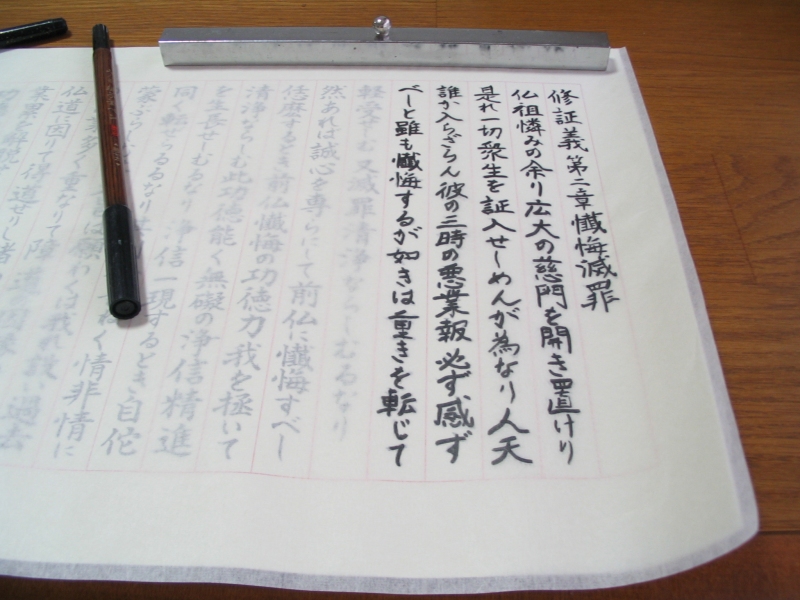 修証義第二章懺悔滅罪
仏祖憐みの余り広大の慈門を開き置けり
是れ一切衆生を証入せしめんが為なり人天
誰か入らざらん彼の三時の悪業報必ず感ず
べしと雖も懺悔するが如きは重きを転じて
軽受せしむ又滅罪清浄ならしむるなり
然あれば誠心を専らにして前仏に懺悔すべし
恁麼するとき前仏懺悔の功徳力我を拯いて
清浄ならしむ此功徳能く無礙の浄信精進
を生長せしむるな
浄信一現するとき自佗
同く転ぜらるるなり
く情非情に
蒙ぶ
願わくは我れ設
過去
多く重なりて障道
仏道に因りて得道せりし